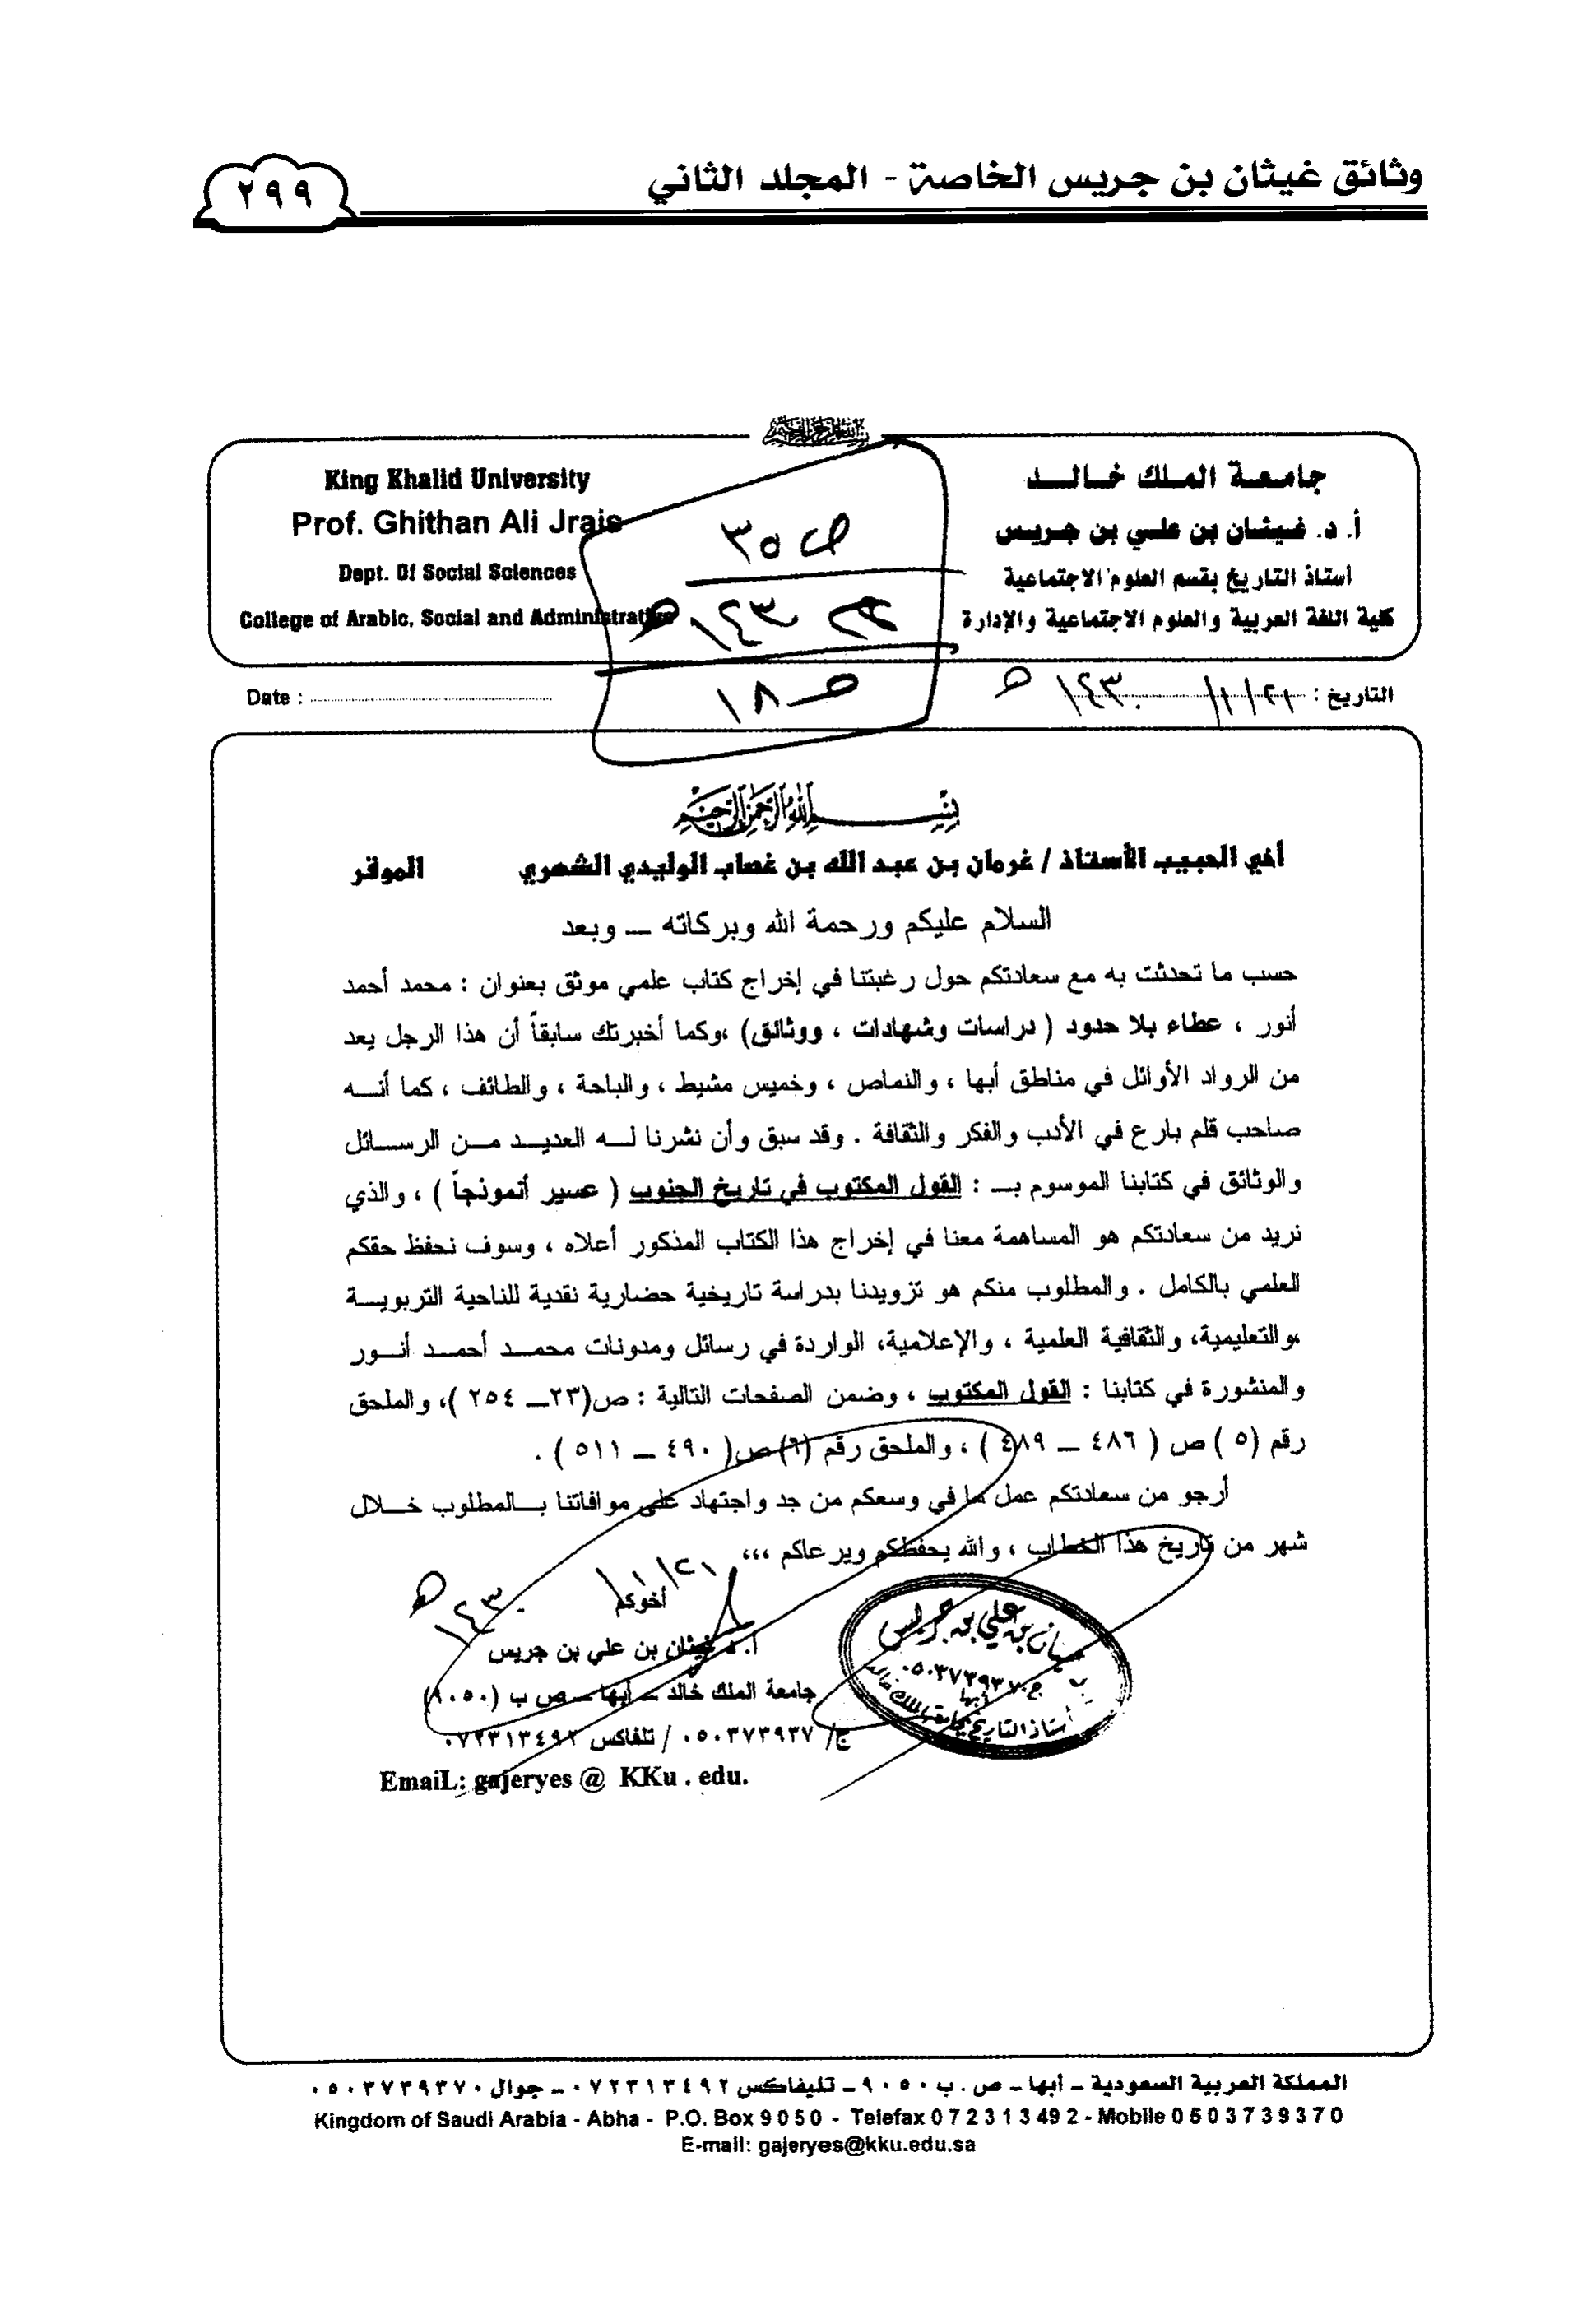 وثائق غيثان بن جريس الخاصة - المجلد الثاني
٢٩٩
جامعة الملك خالد
أ. د. غيثان بن علي بن جريس
أستاذ التاريخ بقسم العلوم الاجتماعية
كلية اللغة العربية والعلوم الاجتماعية والإدارة
King Khalid University
Prof. Ghithan Ali Jrais
Dept. Of Social Sciences
College of Arabic, Social and Administrative
ص ٣٥
١٤٣٠ هـ
ص ١٨
التاريخ : ٢١/١/١٤٣٠ هـ
Date :
بسم الله الرحمن الرحيم
أخي الحبيب الأستاذ / غرمان بن عبد الله بن غصاب الوليدي الشهري الموقر
السلام عليكم ورحمة الله وبركاته ـــ وبعد
حسب ما تحدثت به مع سعادتكم حول رغبتنا في إخراج كتاب علمي موثق بعنوان : محمد أحمد
أنور ، عطاء بلا حدود ( دراسات وشهادات ، ووثائق) ،وكما أخبرتك سابقاً أن هذا الرجل يعد
من الرواد الأوائل في مناطق أبها ، والنماص ، وخميس مشيط ، والباحة ، والطائف ، كما أنــه
صاحب قلم بارع في الأدب والفكر والثقافة . وقد سبق وأن نشرنا لــه العديــد مــن الرســائل
والوثائق في كتابنا الموسوم بــ : القول المكتوب في تاريخ الجنوب ( عسير أنموذجاً ) ، والذي
نريد من سعادتكم هو المساهمة معنا في إخراج هذا الكتاب المذكور أعلاه ، وسوف نحفظ حقكم
العلمي بالكامل . والمطلوب منكم هو تزويدنا بدراسة تاريخية حضارية نقدية للناحية التربويــة
،والتعليمية، والثقافية العلمية ، والإعلامية، الواردة في رسائل ومدونات محمــد أحمــد أنــور
والمنشورة في كتابنا : القول المكتوب ، وضمن الصفحات التالية : ص(٢٣ــ ٢٥٤ )، والملحق
رقم (٥ ) ص ( ٤٨٦ ــ ٤٨٩ ) ، والملحق رقم (٦) ص( ٤٩٠ ــ ٥١١ ) .
أرجو من سعادتكم عمل ما في وسعكم من جد واجتهاد على موافاتنا بــالمطلوب خــلال
شهر من تاريخ هذا الخطاب ، والله يحفظكم ويرعاكم ،،،
٢١/١/١٤٣٠ هـ
أخوكم
أ. د غيثان بن علي بن جريس
جامعة الملك خالد ــ أبها ــ ص ب (٩٠٥٠)
ج/ ٠٥٠٣٧٣٩٣٧ / تلفاكس ٠٧٢٣١٣٤٩٢
EmaiL: gajeryes @ KKu . edu.
غيثان بن علي بن جريس
ج. ٠٥٠٣٧٣٩٣٧٠
أبها
أستاذ التاريخ بجامعة الملك خالد
المملكة العربية السعودية ـ أبها ـ ص . ب ٩٠٥٠ ـ تليفاكس ٠٧٢٣١٣٤٩٢ ـ جوال ٠٥٠٣٧٣٩٣٧٠
Kingdom of Saudi Arabia - Abha - P.O. Box 9050 - Telefax 072313492 - Mobile 0503739370
E-mail: gajeryes@kku.edu.sa